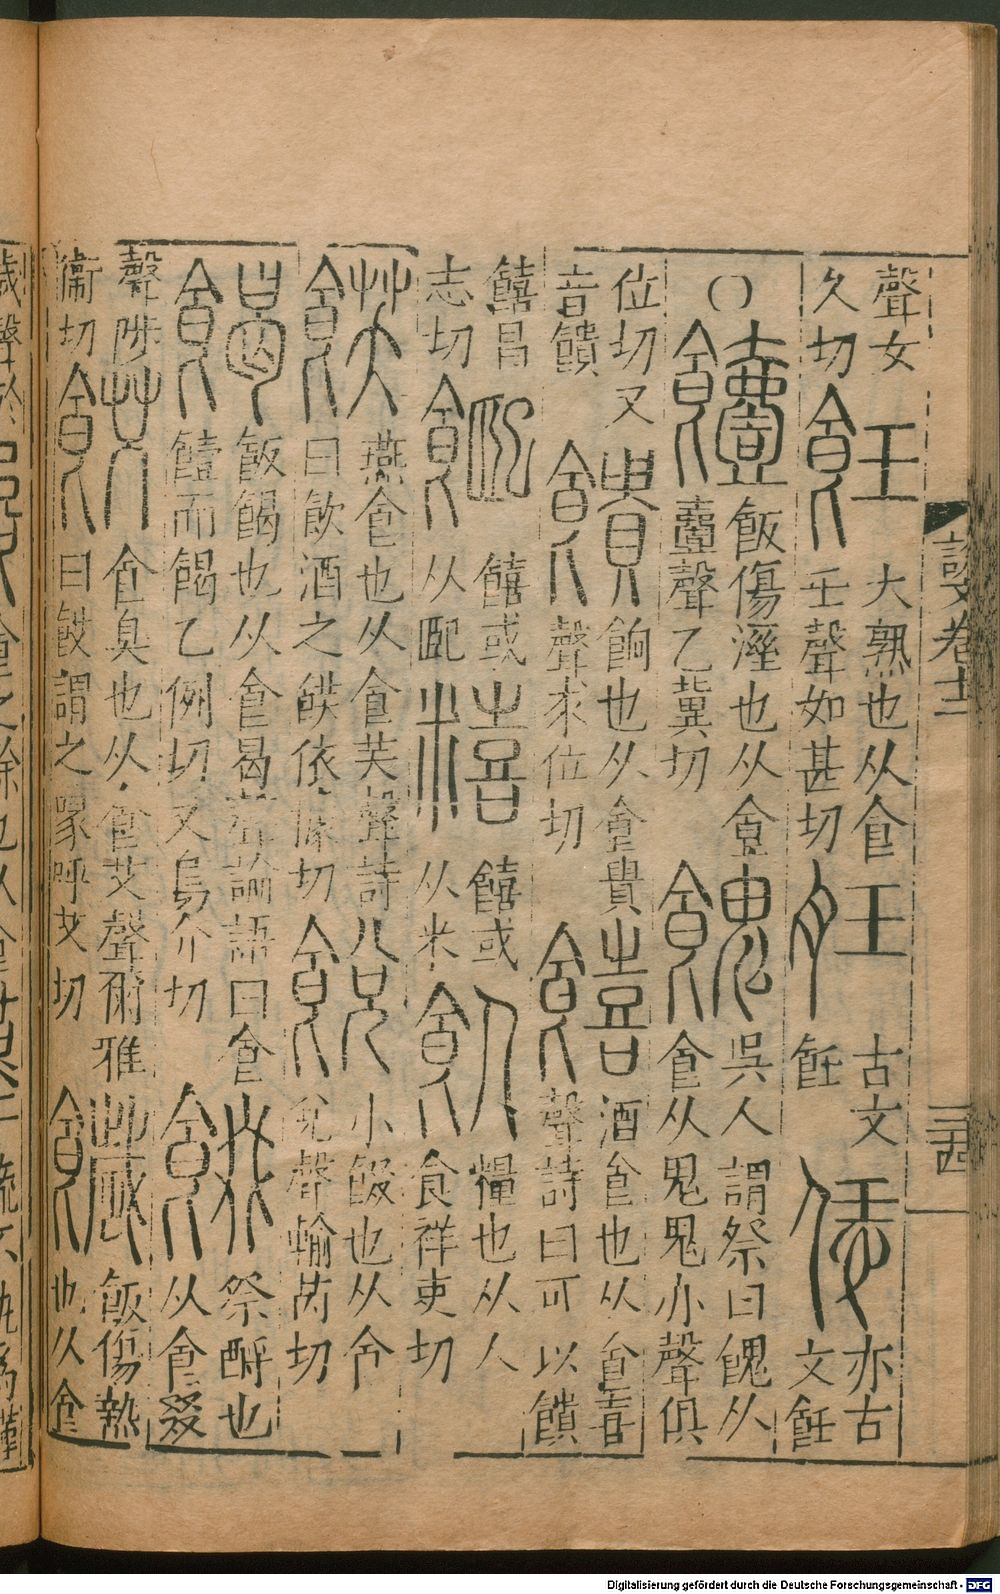 說文卷十二
聲女久切飪大熟也从食壬聲如甚切𦚮古文飪恁亦古文飪
○饐飯傷溼也从食壹聲乙冀切餽吳人謂祭曰餽从食从鬼鬼亦聲俱
位切又音饋饋餉也从食貴聲求位切饎酒食也从食喜聲詩曰可以饙
饎昌志切𩛉饎或从𦣞糦饎或从米飤糧也从人食祥吏切
䬼燕食也从食芺聲詩曰飲酒之䬼依倨切䬽小餟也从食兌聲輸芮切
餲飯餲也从食曷聲論語曰食饐而餲乙例切又烏介切餟祭酹也从食叕
聲陟衞切餀食臭也从食艾聲爾雅曰餀謂之喙呼艾切饖飯傷熱也从食
Digitalisierung gefördert durch die Deutsche Forschungsgemeinschaft - DFG